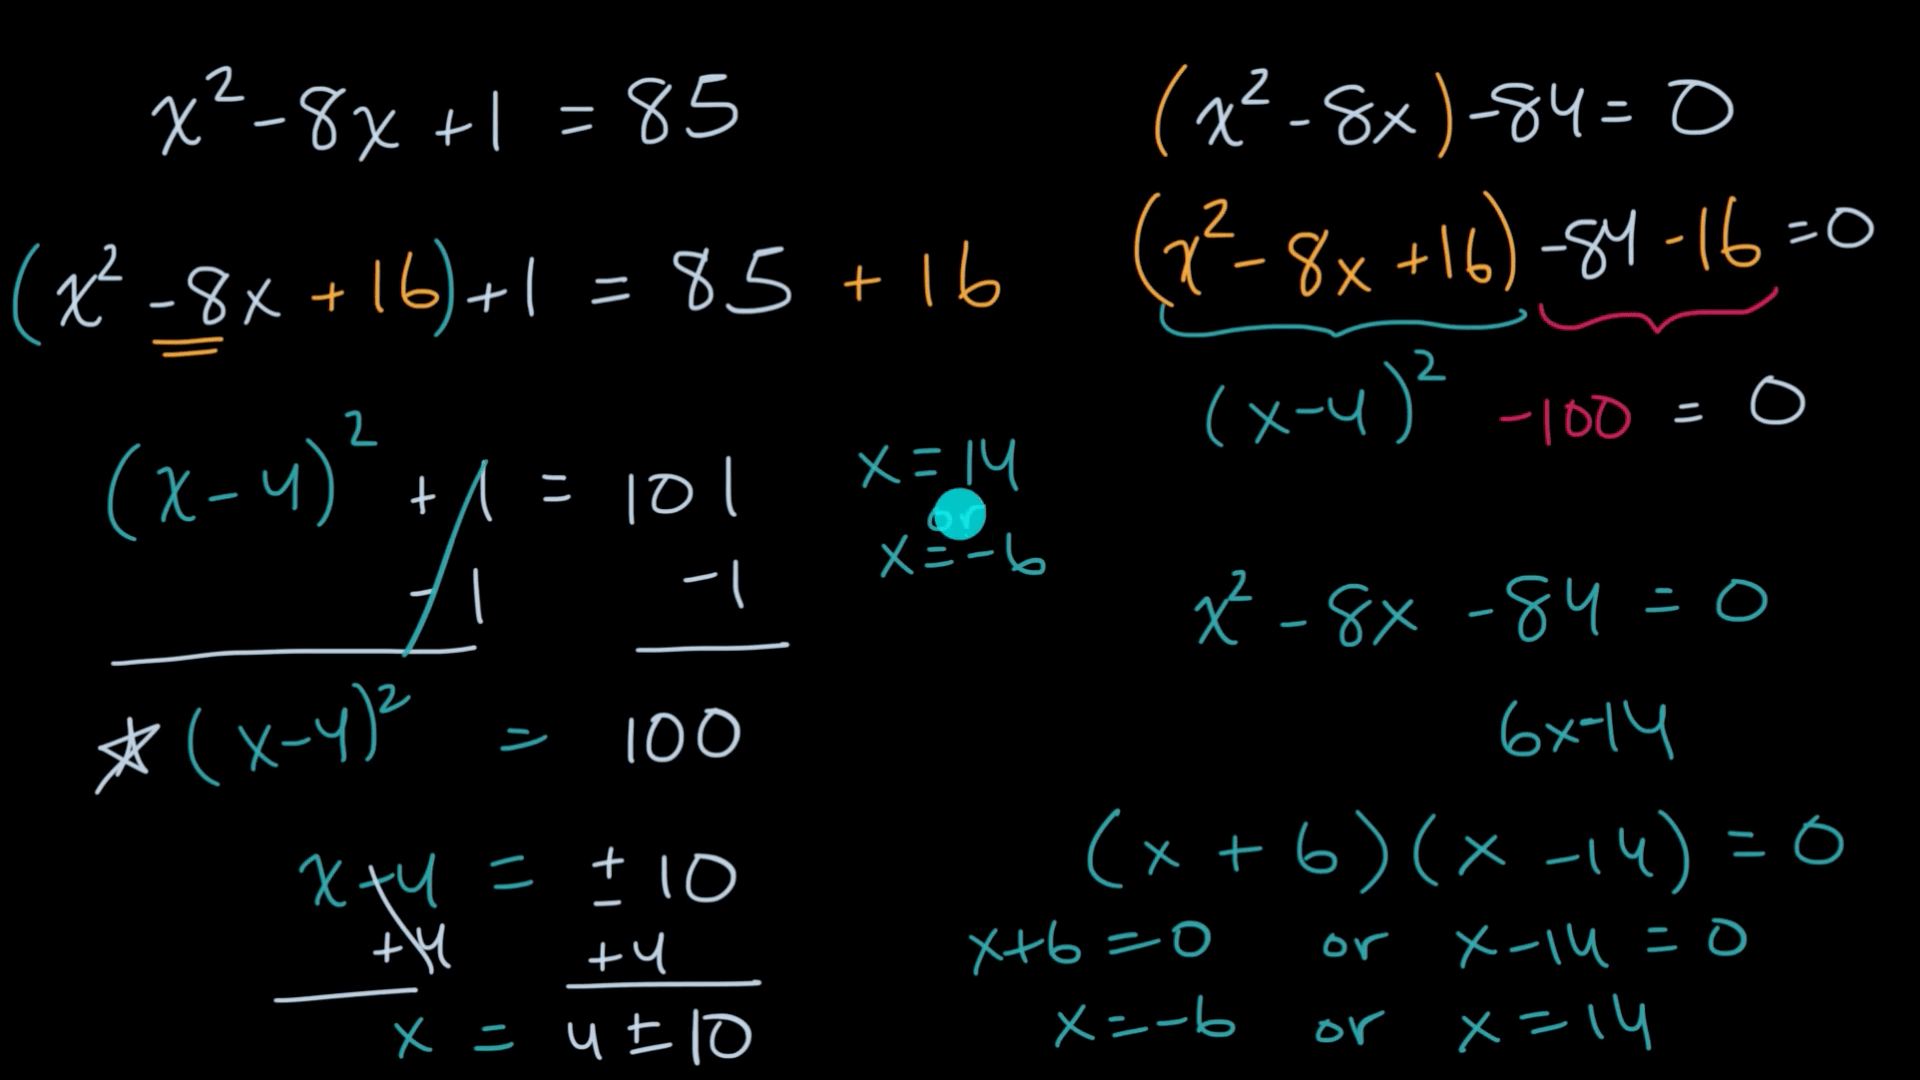 x² - 8x + 1 = 85
(x² - 8x + 16) + 1 = 85 + 16
(x - 4)² + 1 = 101
- 1 - 1
(x - 4)² = 100
x - 4 = ± 10
+ 4 + 4
x = 4 ± 10
x = 14
or
x = -6
(x² - 8x) - 84 = 0
(x² - 8x + 16) - 84 - 16 = 0
(x - 4)² - 100 = 0
x² - 8x - 84 = 0
6x-14
(x + 6)(x - 14) = 0
x + 6 = 0 or x - 14 = 0
x = -6 or x = 14